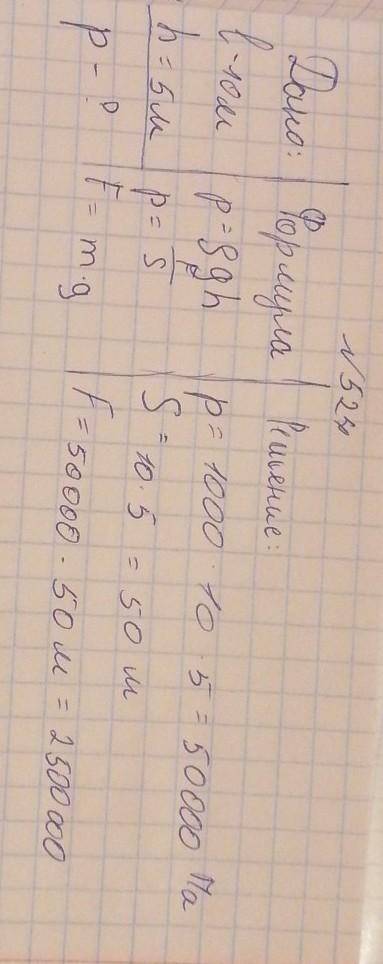 № 522
Дано: Формула Решение:
l - 10 м p = ρgh p = 1000 · 10 · 5 = 50000 Па
h = 5 м p = F/S S = 10 · 5 = 50 м
p - ? F = m·g F = 50000 · 50 м = 2500000